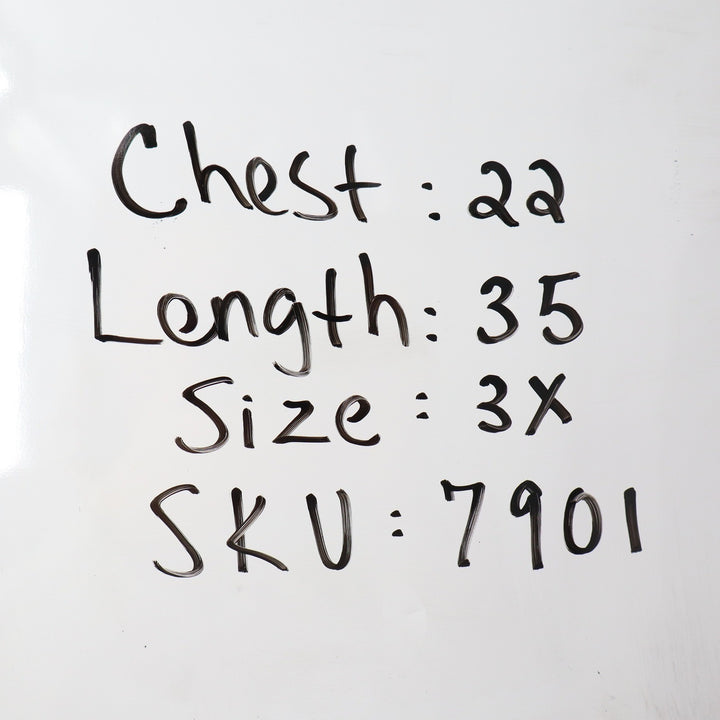 Chest : 22
Length : 35
Size : 3X
SKU : 7901